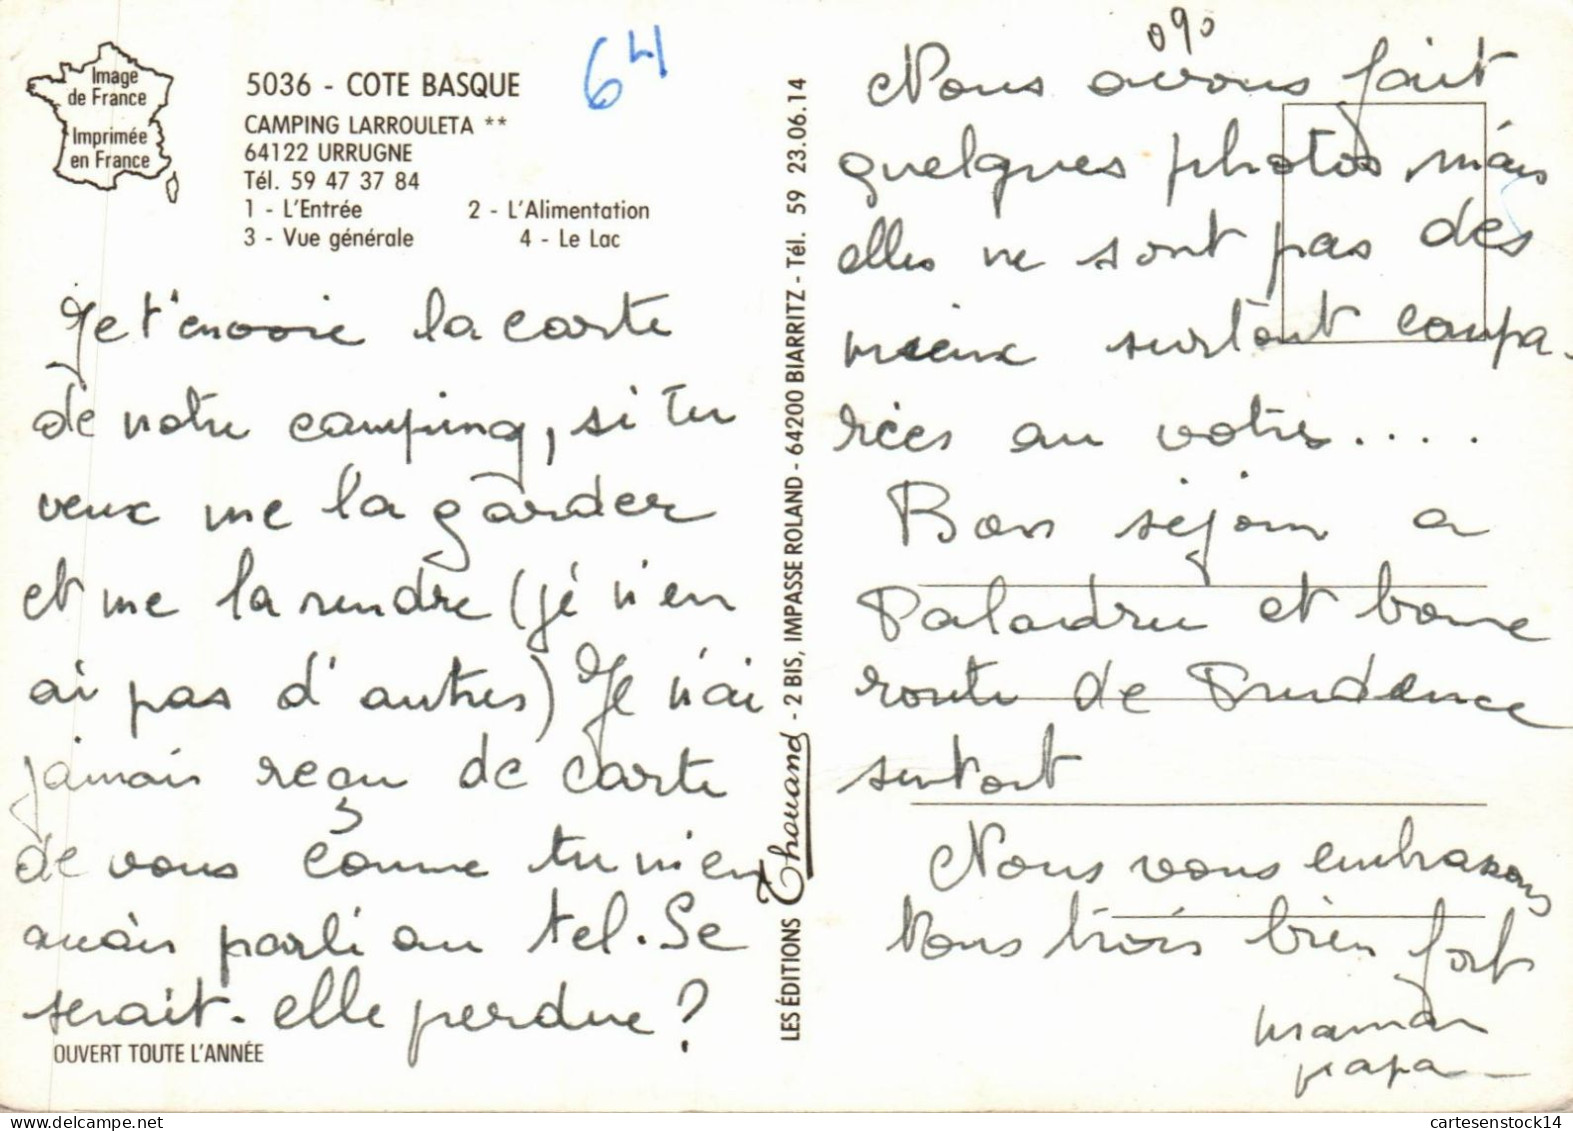 Image
de France
Imprimée
en France
5036 - COTE BASQUE
64
CAMPING LARROULETA **
64122 URRUGNE
Tél. 59 47 37 84
1 - L'Entrée 2 - L'Alimentation
3 - Vue générale 4 - Le Lac
Je t'envoie la carte
de notre camping, si tu
veux me la garder
et me la rendre (je n'en
ai pas d'autres) Je n'ai
jamais reçu de carte
de vous comme tu m'en
avais parlé au tel. Se
serait-elle perdue ?
OUVERT TOUTE L'ANNÉE
LES ÉDITIONS Thouand - 2 BIS, IMPASSE ROLAND - 64200 BIARRITZ - Tél. 59 23.06.14
090
Nous avons fait
quelques photos mais
elles ne sont pas des
mieux surtout compa-
rées au votres....
Bon séjour a
Paladru et bonne
route de Prudence
surtout
Nous vous embrassons
Nous trois bien fort
maman
papa
cartesenstock14